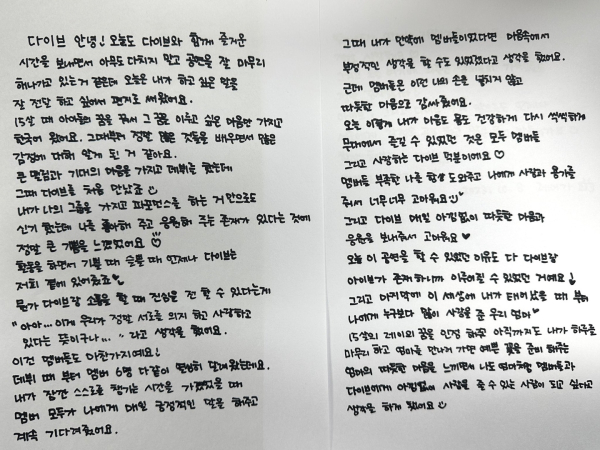 다이브 안녕! 오늘도 다이브와 함께 즐거운
시간을 보내면서 아무도 다치지 말고 공연을 잘 마무리
해나가고 있는거 같은데 오늘은 내가 하고 싶은 말을
잘 전달 하고 싶어서 편지로 써왔어요.
15살 때 아이돌의 꿈을 꿔서 그 꿈을 이루고 싶은 마음만 가지고
한국에 왔어요. 그때부터 정말 많은 것들을 배우면서 많은
감정에 대해 알게 된 거 같아요.
큰 떨림과 기대의 마음을 가지고 데뷔를 했는데
그때 다이브를 처음 만났죠
내가 나의 그룹을 가지고 퍼포먼스를 하는 거 만으로도
신기 했는데 나를 좋아해 주고 응원해 주는 존재가 있다는 것에
정말 큰 기쁨을 느꼈었어요
활동을 하면서 기쁠 때 슬플 때 언제나 다이브는
저희 곁에 있어줬죠
뭔가 다이브랑 소통을 할 때 진심은 전 할 수 있다는게
"아아... 이게 우리가 정말 서로를 의지 하고 사랑하고
있다는 뜻이구나..." 라고 생각을 했어요.
이건 멤버들도 마찬가지예요!
데뷔 때 부터 멤버 6명 다같이 열심히 달려왔는데요.
내가 잠깐 스스로를 챙기는 시간을 가졌었을 때
멤버 모두가 나에게 매일 긍정적인 말을 해주고
계속 기다려줬어요.
그때 내가 만약에 멤버들이었다면 마음속에서
부정적인 생각을 할 수도 있었겠다고 생각을 했어요.
근데 멤버들은 이런 나의 손을 놓치지 않고
따뜻한 마음으로 감싸줬어요.
오늘 이렇게 내가 마음도 몸도 건강하게 다시 씩씩하게
무대에서 즐길 수 있었던 것은 모두 멤버들
그리고 사랑하는 다이브 덕분이에요♡
멤버들 부족한 나를 항상 도와주고 나에게 사랑과 용기를
줘서 너무너무 고마워요
그리고 다이브 매일 아낌없이 따뜻한 마음과
응원을 보내줘서 고마워요♥
오늘 이 공연을 할 수 있었던 이유도 다 다이브랑
아이브가 존재하니까 이루어질 수 있었던 거예요!
그리고 마지막에 이 세상에 내가 태어났을 때 부터
나에게 누구보다 많이 사랑을 준 우리 엄마♥
15살의 레이의 꿈을 인정 해줘 아직까지도 내가 하루를
마무리 하고 엄마를 만나러 가면 예쁜 꽃을 준비 해주는
엄마의 따뜻한 마음을 느끼면서 나도 엄마처럼 멤버들과
다이브에게 아낌없이 사랑을 줄 수 있는 사람이 되고 싶다고
생각을 하게 됐어요